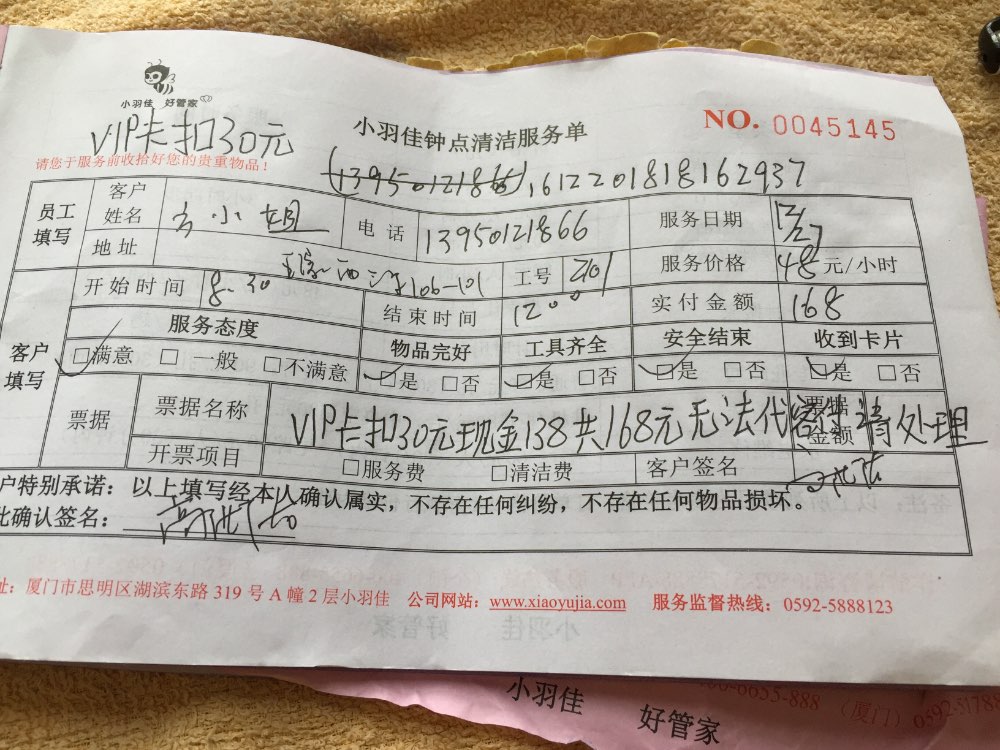 小羽佳 好管家
VIP卡扣30元
小羽佳钟点清洁服务单
NO. 0045145
请您于服务前收拾好您的贵重物品！
(13950121866) 161220181816 2937
员工填写 客户姓名 小姐 电话 13950121866 服务日期 12/27
地址 106-101 工号 服务价格 48元/小时
客户填写 开始时间 8.30 结束时间 12 00 实付金额 168
服务态度 物品完好 工具齐全 安全结束 收到卡片
□满意 □一般 □不满意 □是 □否 □是 □否 □是 □否 □是 □否
票据 票据名称 VIP卡扣30元现金138共168元无法代 待处理 票据金额
开票项目 □服务费 □清洁费 客户签名
户特别承诺：以上填写经本人确认属实，不存在任何纠纷，不存在任何物品损坏。
此确认签名：
址：厦门市思明区湖滨东路 319 号 A 幢 2 层小羽佳 公司网站：www.xiaoyujia.com 服务监督热线：0592-5888123
小羽佳 好管家